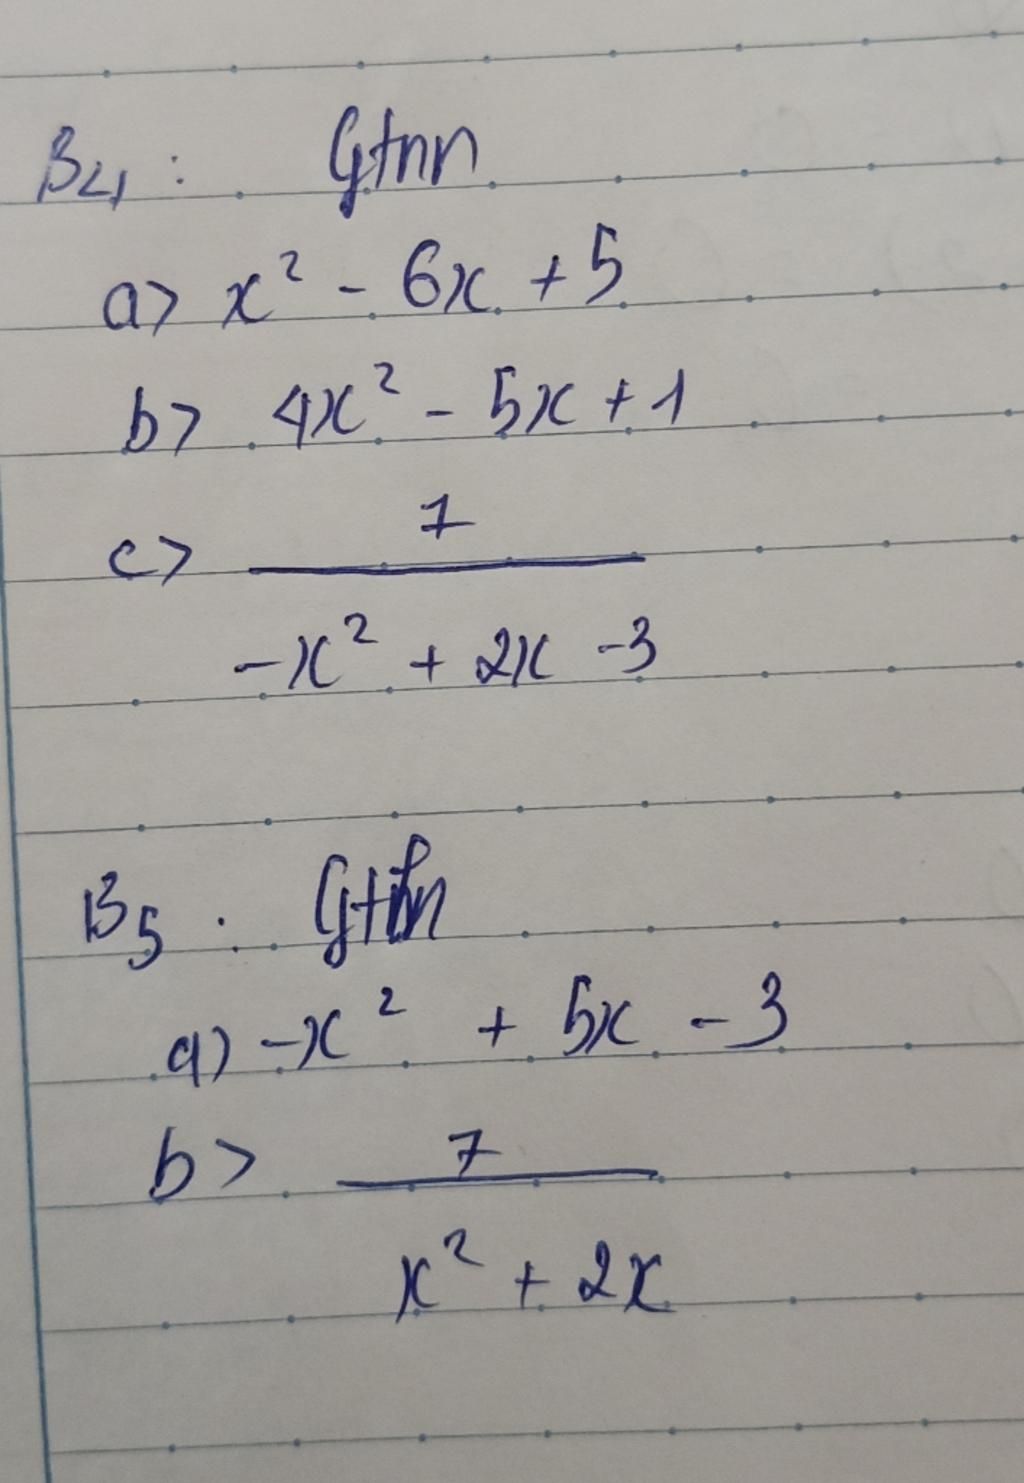 B4: Gtnn
a> x² - 6x + 5
b> 4x² - 5x + 1
c> 7
-x² + 2x - 3
B5: Gtln
a) -x² + 5x - 3
b> 7
x² + 2x